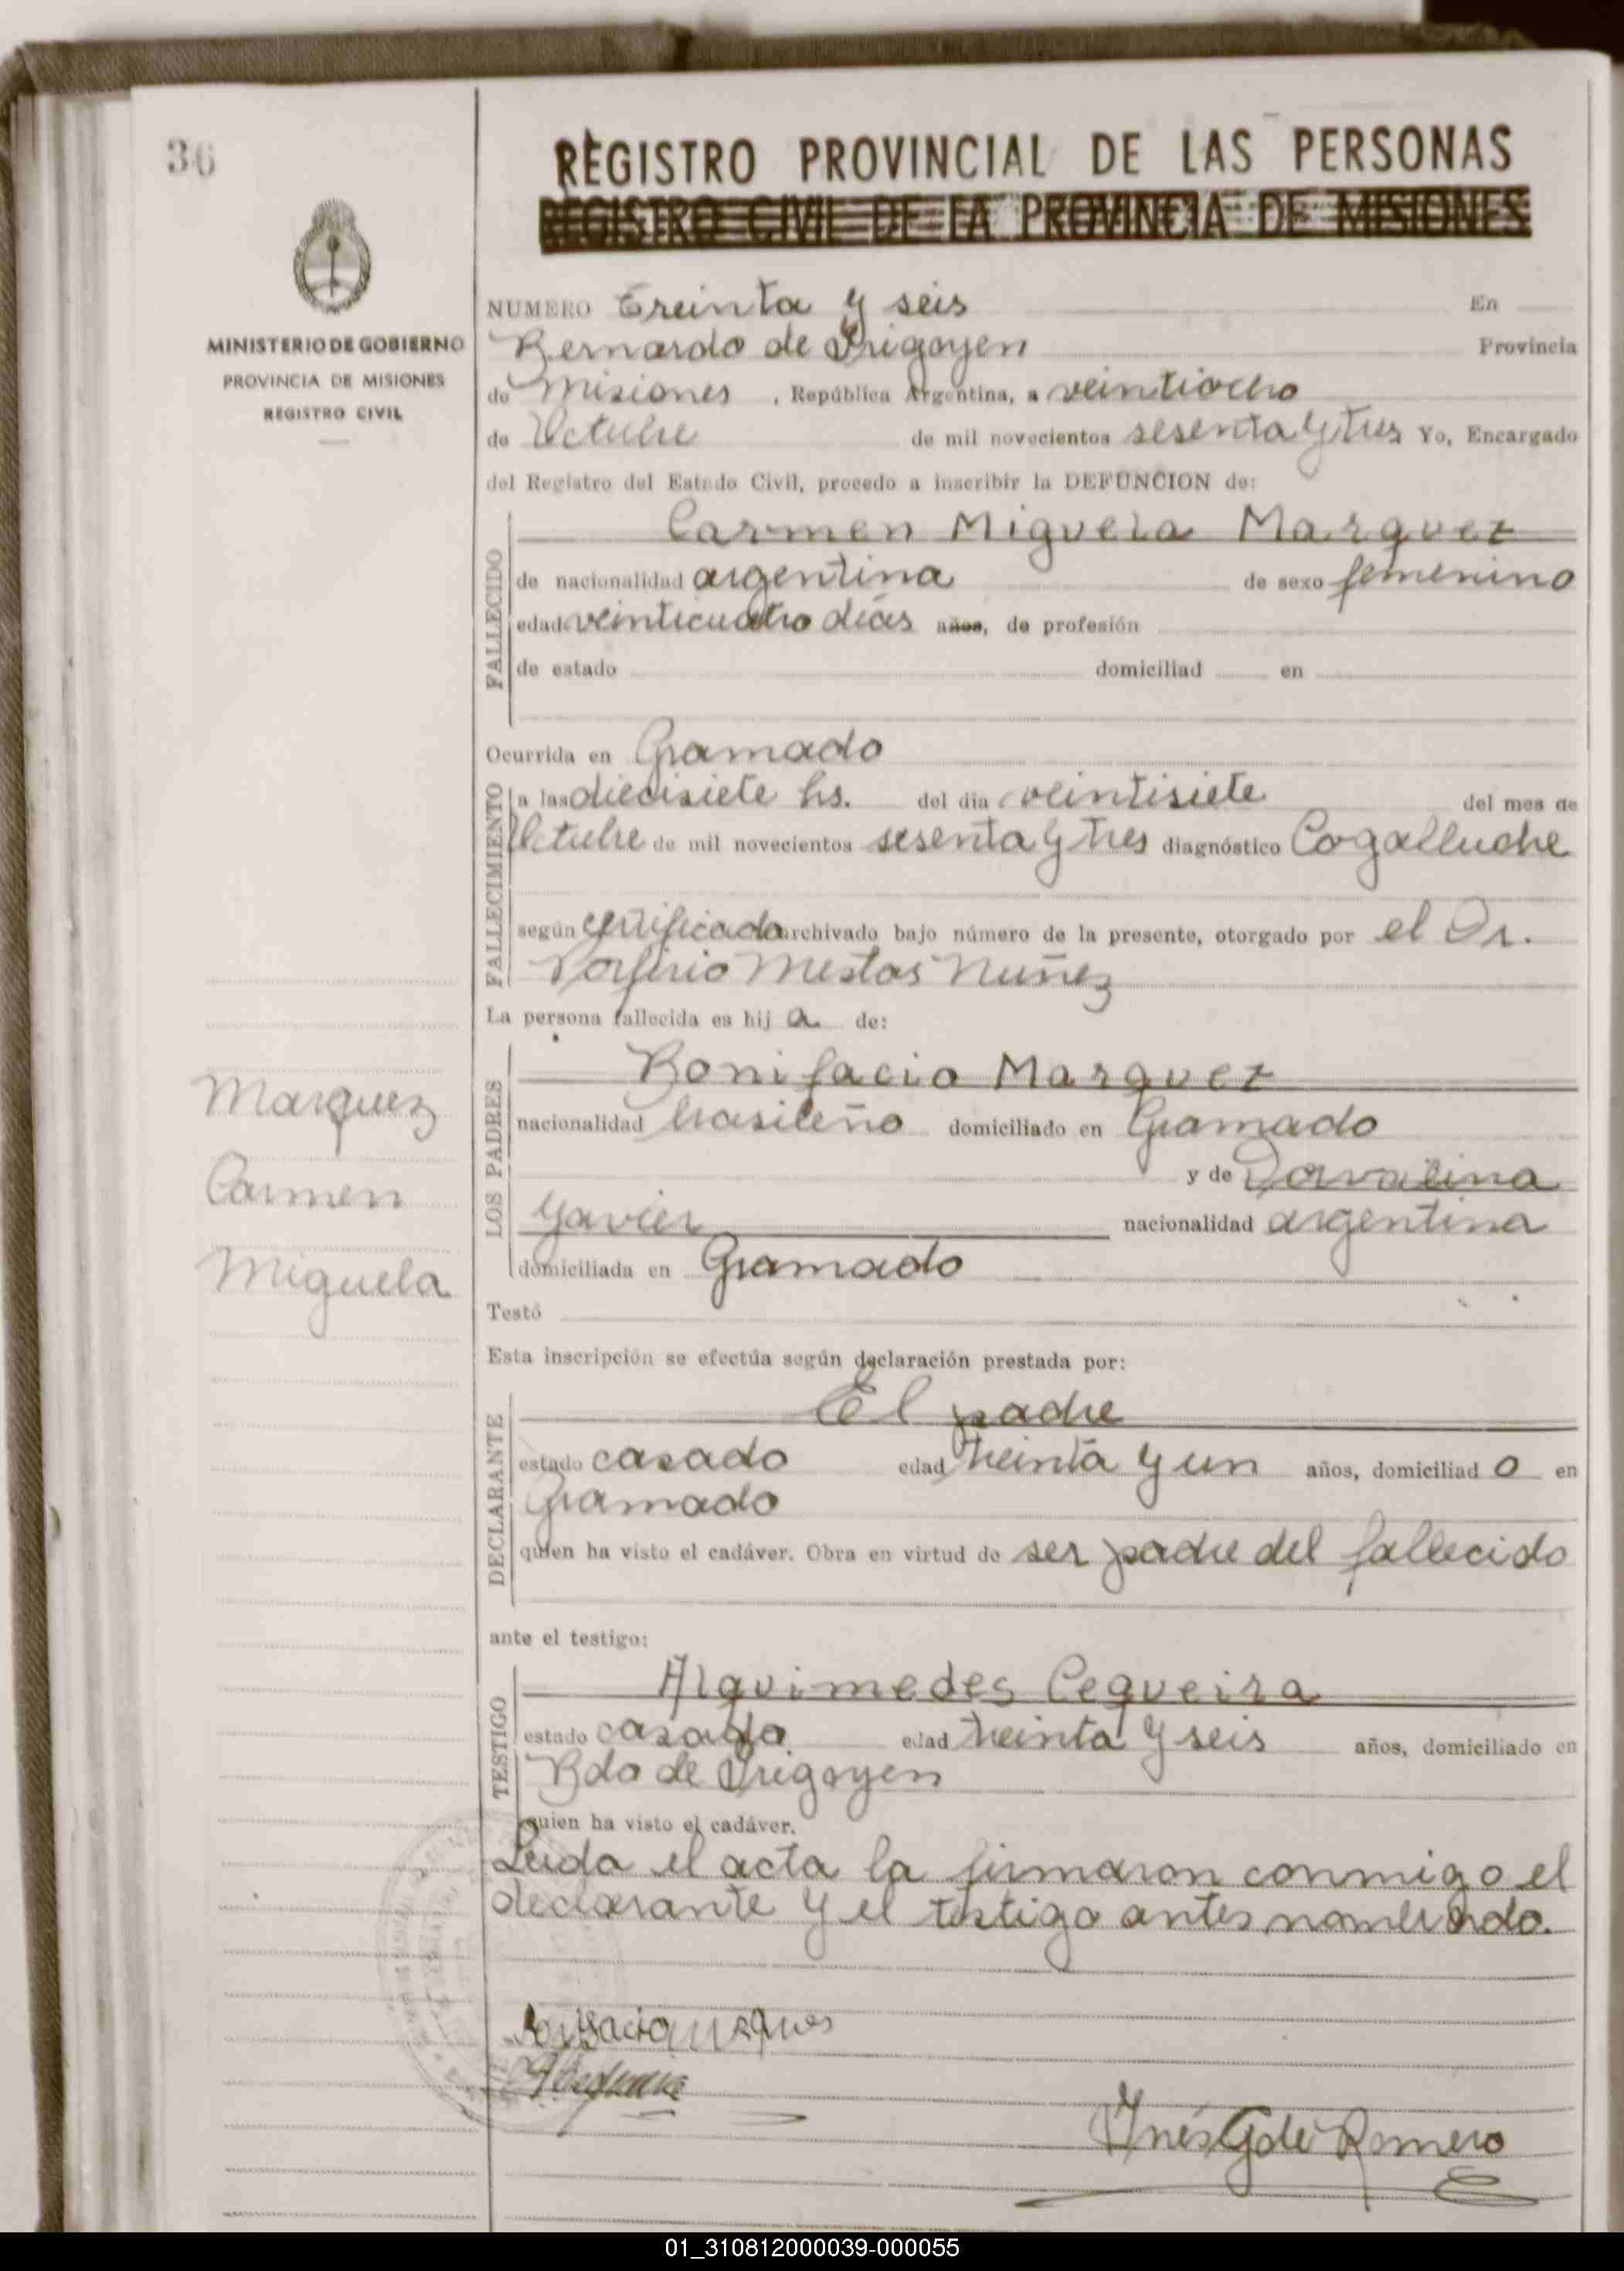 36
REGISTRO PROVINCIAL DE LAS PERSONAS
REGISTRO CIVIL DE LA PROVINCIA DE MISIONES
MINISTERIO DE GOBIERNO
PROVINCIA DE MISIONES
REGISTRO CIVIL
NUMERO Treinta y seis En
Bernardo de Irigoyen Provincia
de Misiones , República Argentina, a veintiocho
de Octubre de mil novecientos sesenta y tres Yo, Encargado
del Registro del Estado Civil, procedo a inscribir la DEFUNCION de:
FALLECIDO
Carmen Miguela Marquez
de nacionalidad argentina de sexo femenino
edad veinticuatro días años, de profesión
de estado domiciliad en
Ocurrida en Gramado
FALLECIMIENTO
a las diecisiete hs. del día veintisiete del mes de
Octubre de mil novecientos sesenta y tres diagnóstico Cogalluche
según certificado archivado bajo número de la presente, otorgado por el Dr.
Porfirio Mestas Nuñez
La persona fallecida es hij a de:
LOS PADRES
Bonifacio Marquez
nacionalidad brasileño domiciliado en Gramado
y de Dorvalina
Yavier nacionalidad argentina
domiciliada en Gramado
Marquez
Carmen
Miguela
Testó
Esta inscripción se efectúa según declaración prestada por:
DECLARANTE
El padre
estado casado edad treinta y un años, domiciliad o en
Gramado
quien ha visto el cadáver. Obra en virtud de ser padre del fallecido
ante el testigo:
TESTIGO
Alquimedes Cequeira
estado casado edad treinta y seis años, domiciliado en
Bdo de Irigoyen
quien ha visto el cadáver.
Leida el acta la firmaron conmigo el
declarante y el testigo antes nombrado.
Inés G de Romero
01_310812000039-000055